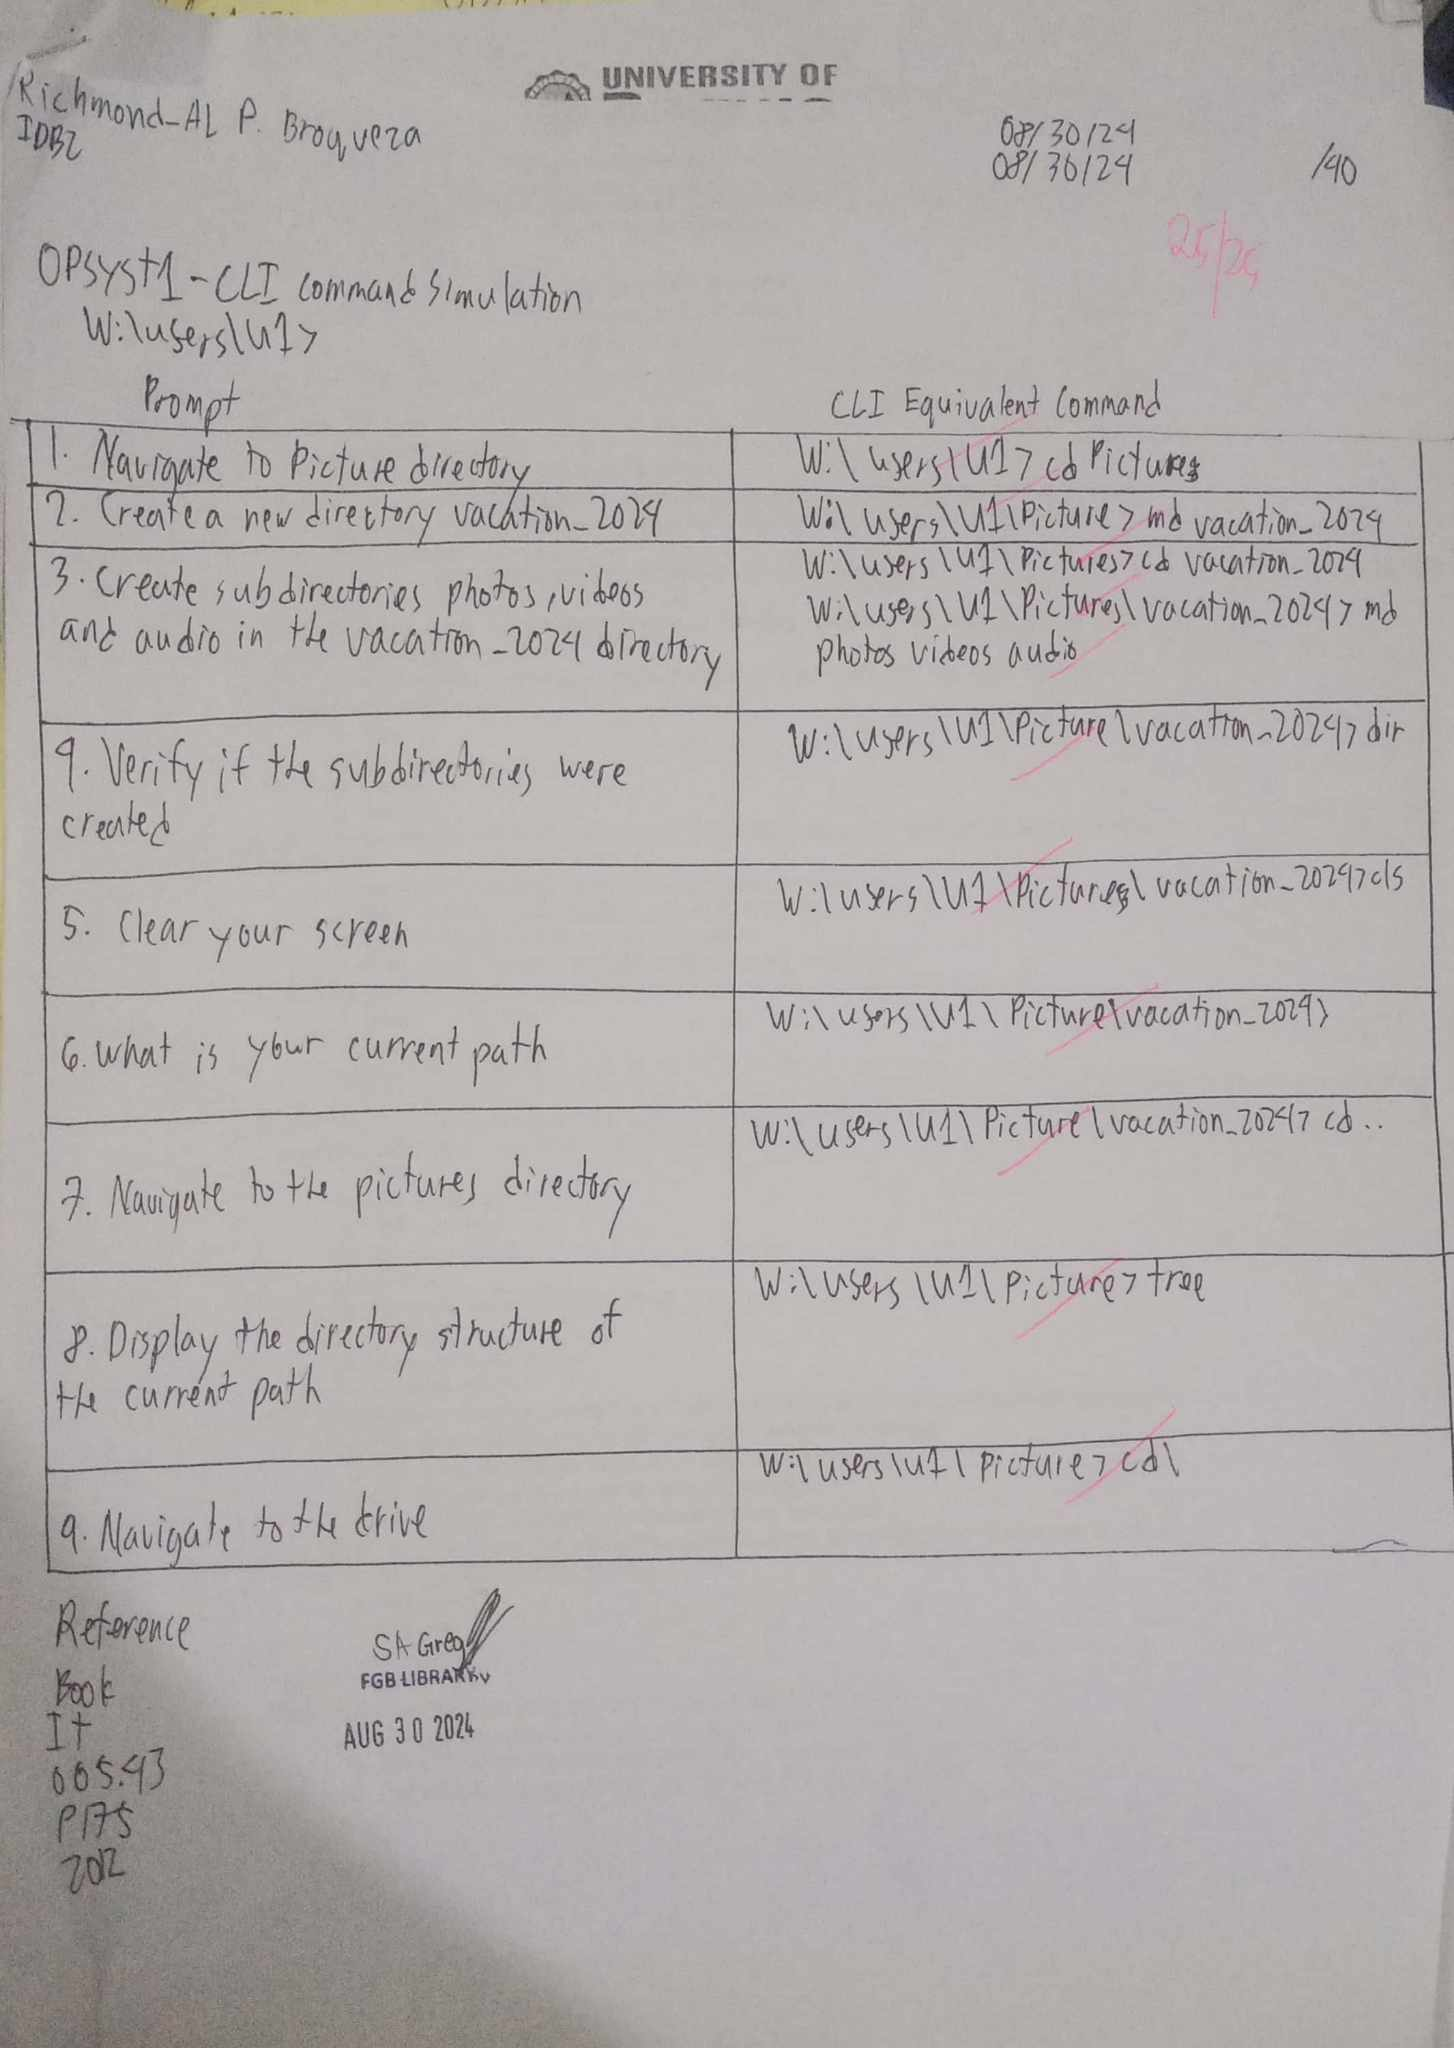 UNIVERSITY OF
Richmond-AL P. Broqueza
IDB2
08/30/24
08/30/24
/40
25/25
OPSYST1-CLI command Simulation
W:\users\U1>
Prompt
CLI Equivalent Command
1. Navigate to Picture directory
W:\users\U1> cd Pictures
2. Create a new directory vacation_2024
W:\users\U1\Picture> md vacation_2024
3. Create subdirectories photos, videos
and audio in the vacation_2024 directory
W:\users\U1\Pictures> cd vacation_2024
W:\users\U1\Pictures\vacation_2024> md
photos videos audio
4. Verify if the subdirectories were
created
W:\users\U1\Picture\vacation_2024> dir
5. Clear your screen
W:\users\U1\Pictures\vacation_2024>cls
6. What is your current path
W:\users\U1\Picture\vacation_2024>
7. Navigate to the pictures directory
W:\users\U1\Picture\vacation_2024> cd..
8. Display the directory structure of
the current path
W:\users\U1\Picture> tree
9. Navigate to the drive
W:\users\U1\Picture> cd\
Reference
Book
It
005.43
P175
2012
SA Greg
FGB LIBRARY
AUG 30 2024